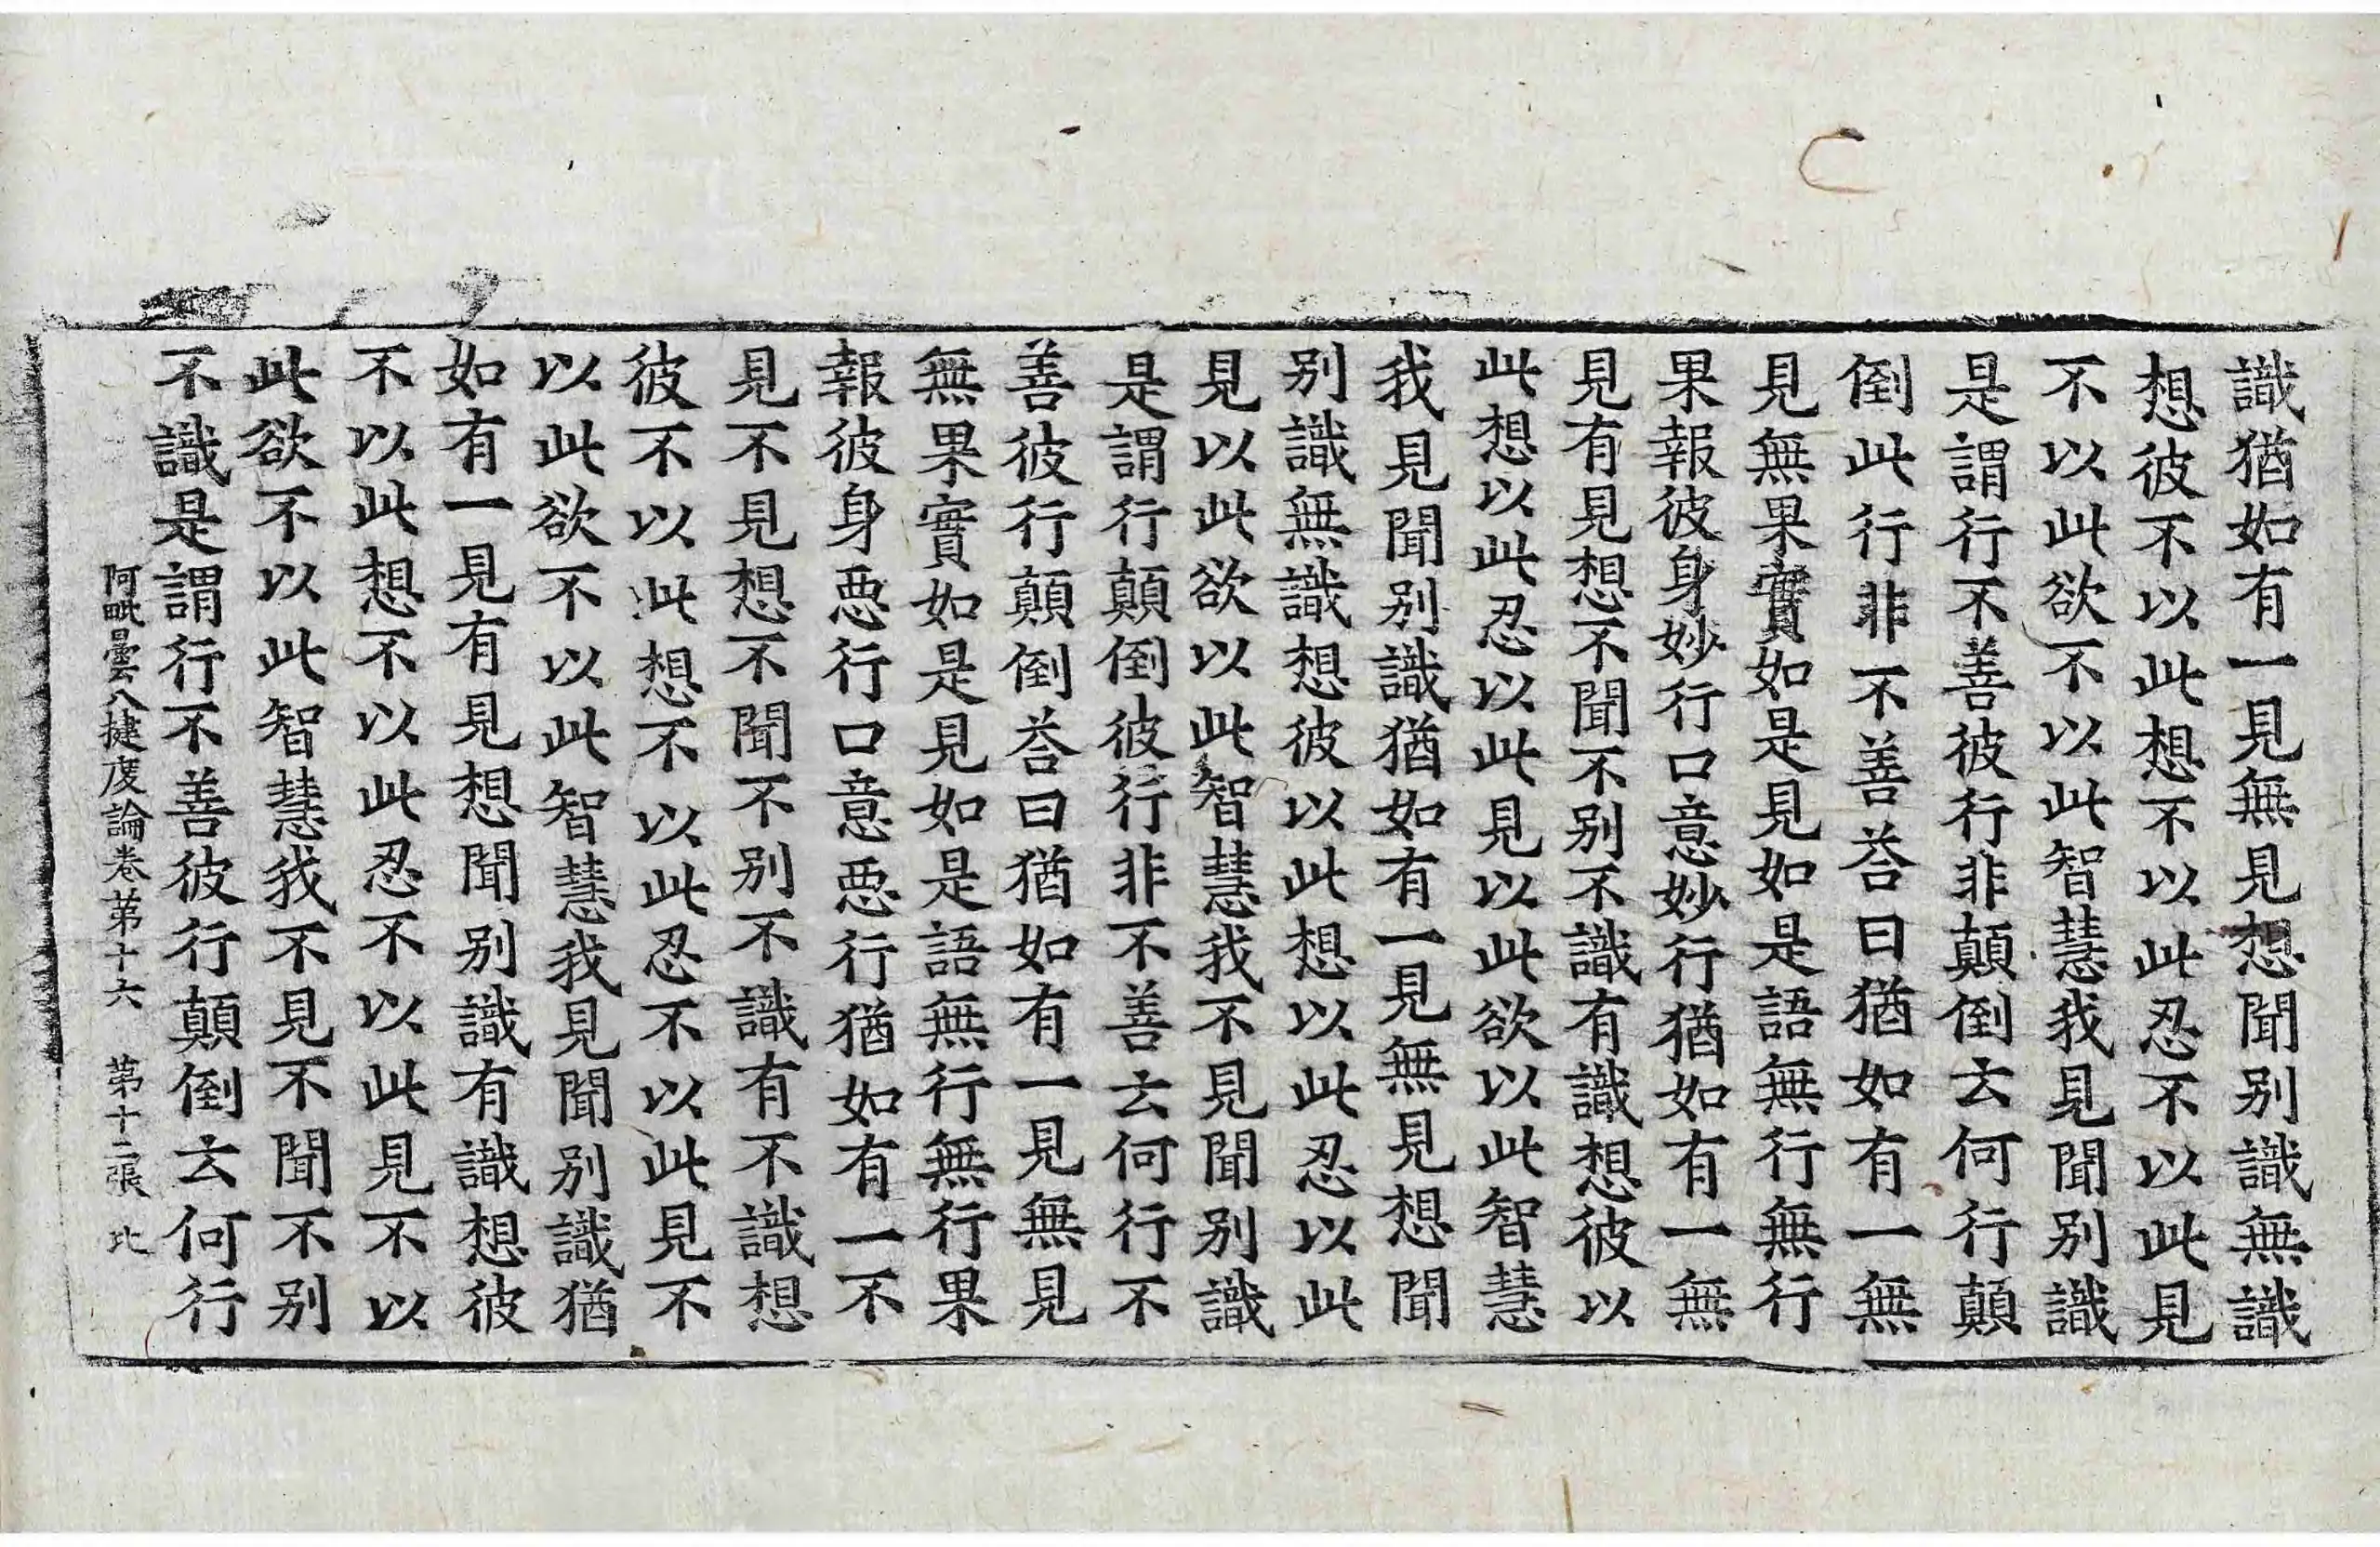 識猶如有一見無見想聞别識無識
想彼不以此想不以此忍不以此見
不以此欲不以此智慧我見聞别識
是謂行不善彼行非顛倒云何行顛
倒此行非不善荅曰猶如有一無
見無果實如是見如是語無行無行
果報彼身妙行口意妙行猶如有一無
見有見想不聞不别不識有識想彼以
此想以此忍以此見以此欲以此智慧
我見聞别識猶如有一見無見想聞
别識無識想彼以此想以此忍以此
見以此欲以此智慧我不見聞别識
是謂行顛倒彼行非不善云何行不
善彼行顛倒荅曰猶如有一見無見
無果實如是見如是語無行無行果
報彼身惡行口意惡行猶如有一不
見不見想不聞不别不識有不識想
彼不以此想不以此忍不以此見不
以此欲不以此智慧我見聞别識猶
如有一見有見想聞别識有識想彼
不以此想不以此忍不以此見不以
此欲不以此智慧我不見不聞不别
不識是謂行不善彼行顛倒云何行
阿毗曇八揵度論卷第十六 第十二張 此